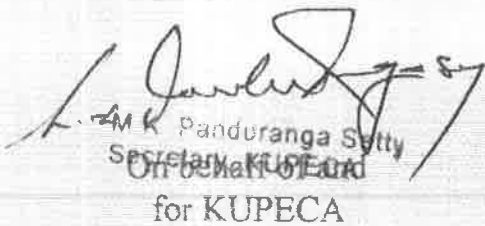 M K Panduranga Setty
Secretary, KUPECA
On behalf of and
for KUPECA